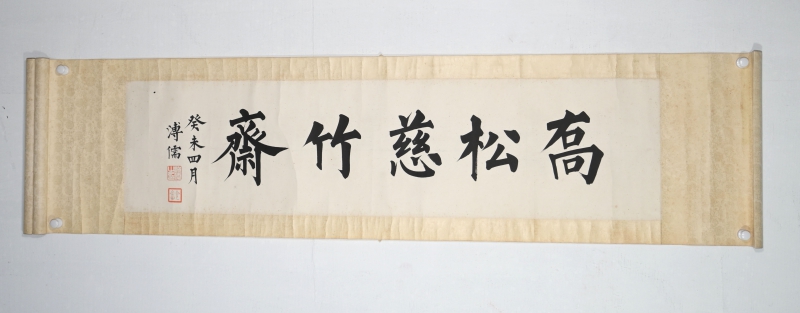 髙松慈竹齋
癸未四月
溥儒